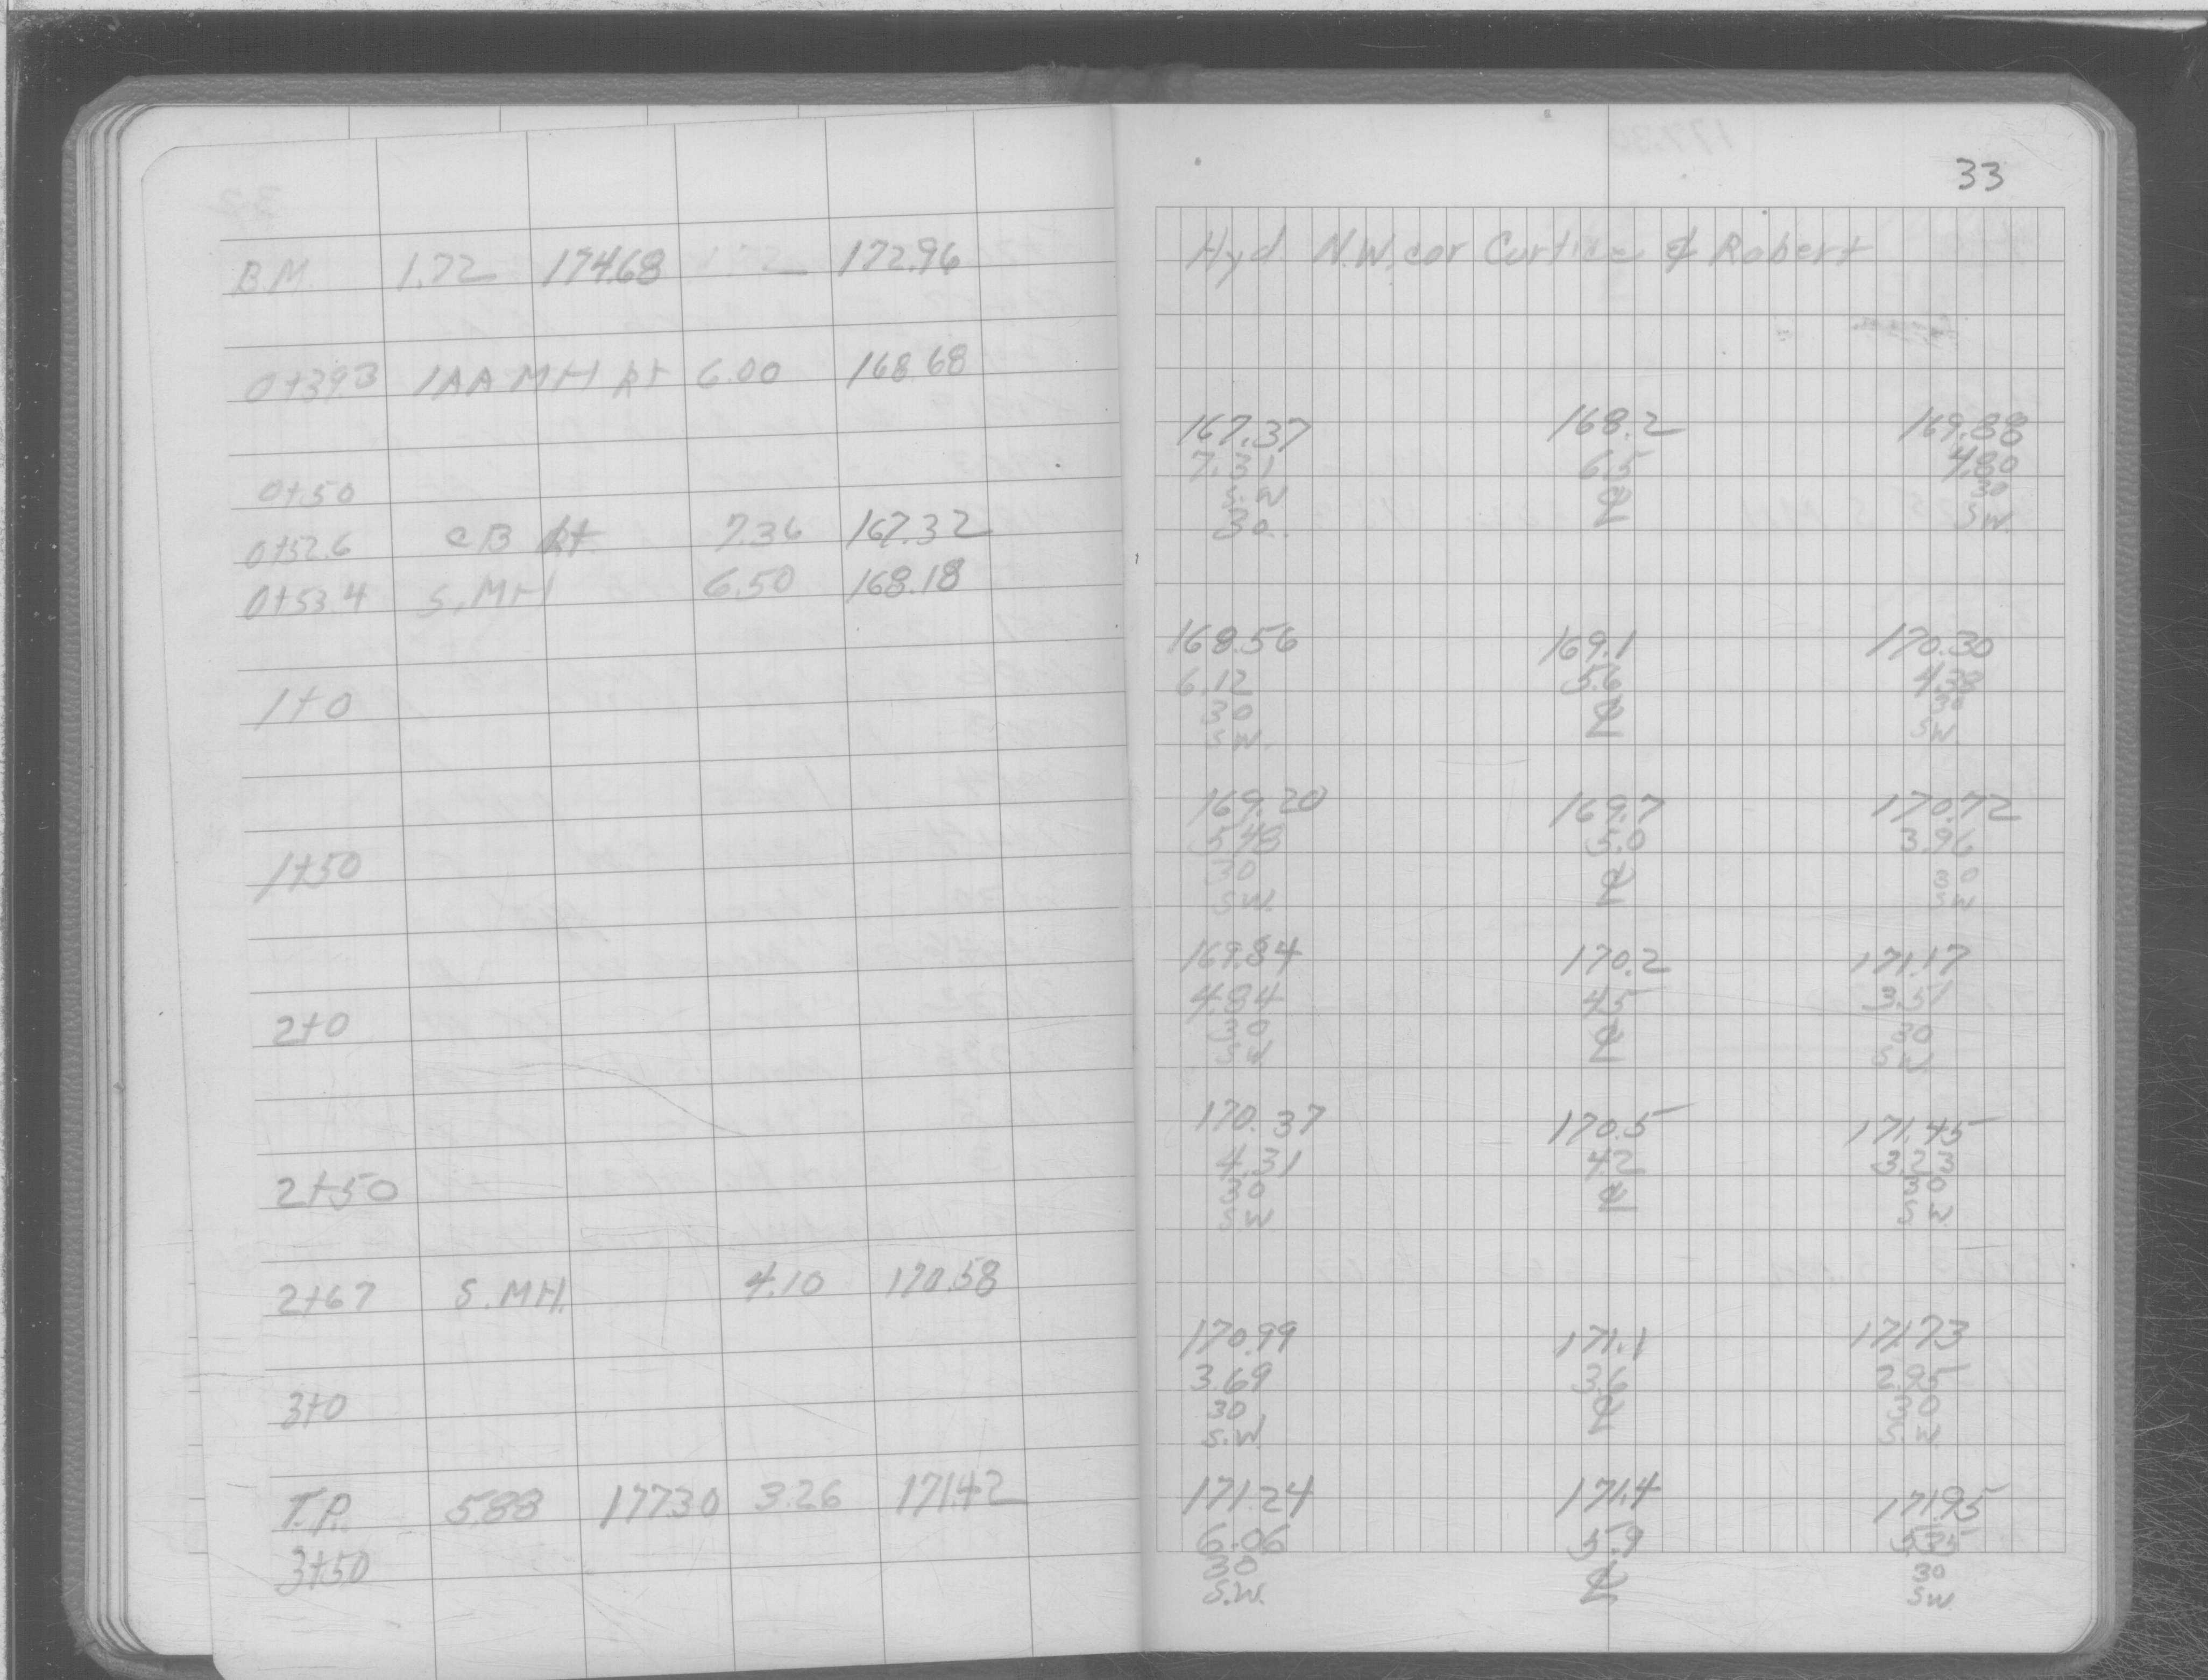 33
B.M. 1.72 174.68 172.96 Hyd. N.W. cor Curtice & Robert
0+39.3 MH Rt 6.00 168.68
167.37 168.2 169.88
7.31 6.5 4.80
S.W ℄ 30
30 SW.
0+50
0+52.6 CB Rt 7.36 167.32
0+53.4 S.MH 6.50 168.18
168.56 169.1 170.30
6.12 5.6 4.38
30 ℄ 30
SW. SW.
1+0
169.20 169.7 170.72
5.48 5.0 3.96
30 ℄ 30
SW. SW
1+50
169.84 170.2 171.17
4.84 4.5 3.51
30 ℄ 30
SW SW
2+0
170.37 170.5 171.45
4.31 4.2 3.23
30 ℄ 30
SW SW
2+50
2+67 S.MH. 4.10 170.58
170.99 171.1 171.73
3.69 3.6 2.95
30 ℄ 30
S.W. S.W.
3+0
T.P. 5.88 177.30 3.26 171.42
171.24 171.4 171.95
6.06 5.9 5.35
30 ℄ 30
S.W. SW
3+50